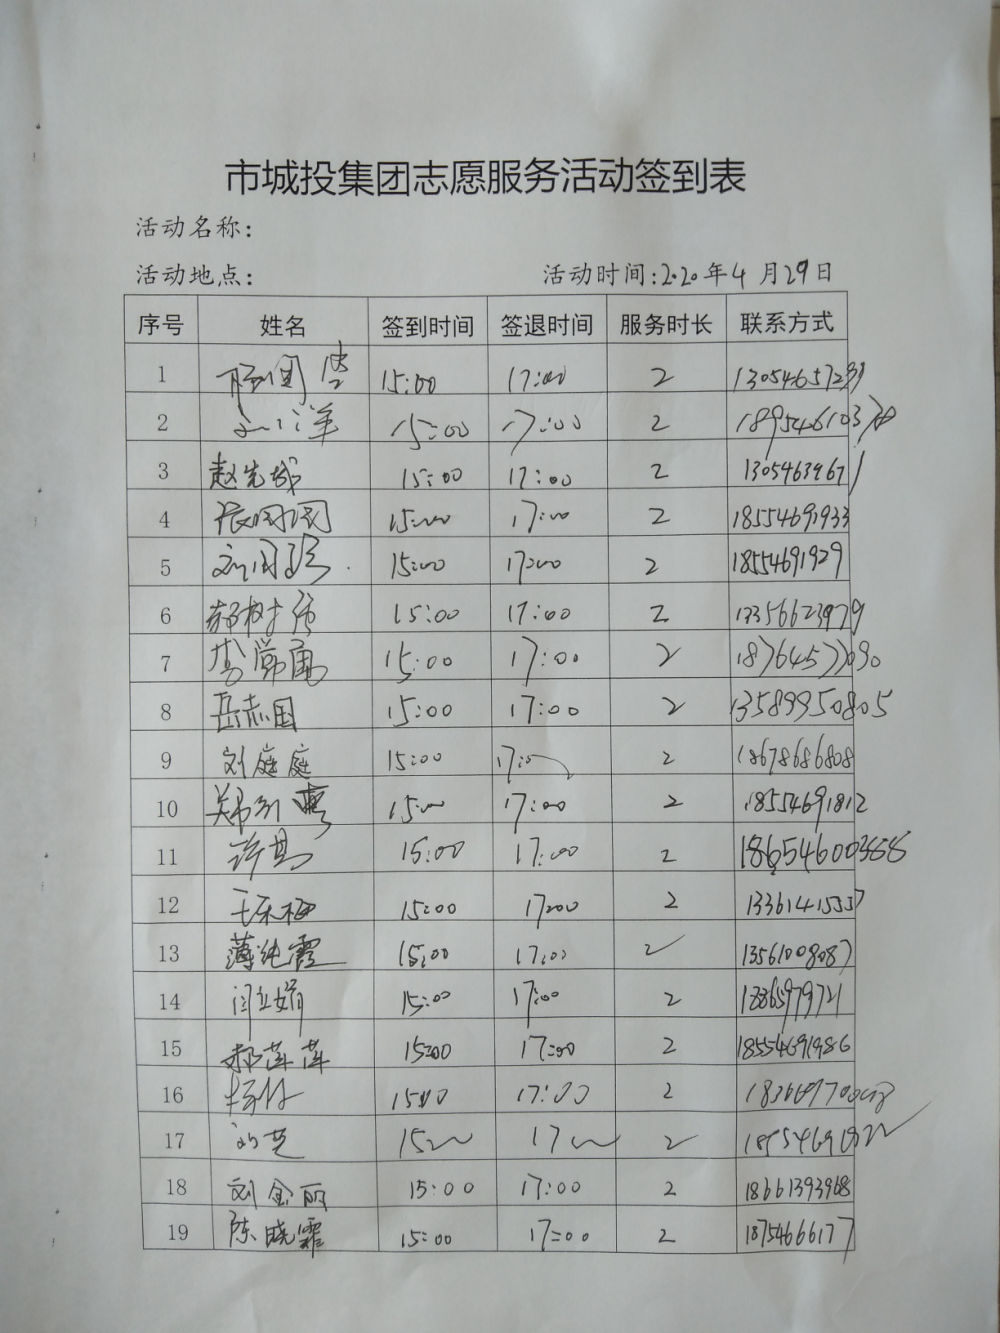 市城投集团志愿服务活动签到表
活动名称:
活动地点: 活动时间:2020年4月29日
序号 姓名 签到时间 签退时间 服务时长 联系方式
1 15:00 17:00 2
2 15:00 17:00 2
3 赵先城 15:00 17:00 2 13054639671
4 15:00 17:00 2 18554691933
5 15:00 17:00 2 18554691929
6 15:00 17:00 2 13356623979
7 李常禹 15:00 17:00 2 18764577090
8 岳志国 15:00 17:00 2 13589950805
9 刘庭庭 15:00 17:00 2 18678686808
10 15:00 17:00 2 18554691812
11 15:00 17:00 2
12 15:00 17:00 2
13 薄纯霞 15:00 17:00 2 13561008087
14 闫立娟 15:00 17:00 2
15 郝莲莲 15:00 17:00 2 18554691986
16 15:00 17:00 2
17 15:00 17:00 2
18 刘金丽 15:00 17:00 2 18661393968
19 陈晓霏 15:00 17:00 2 18754666177